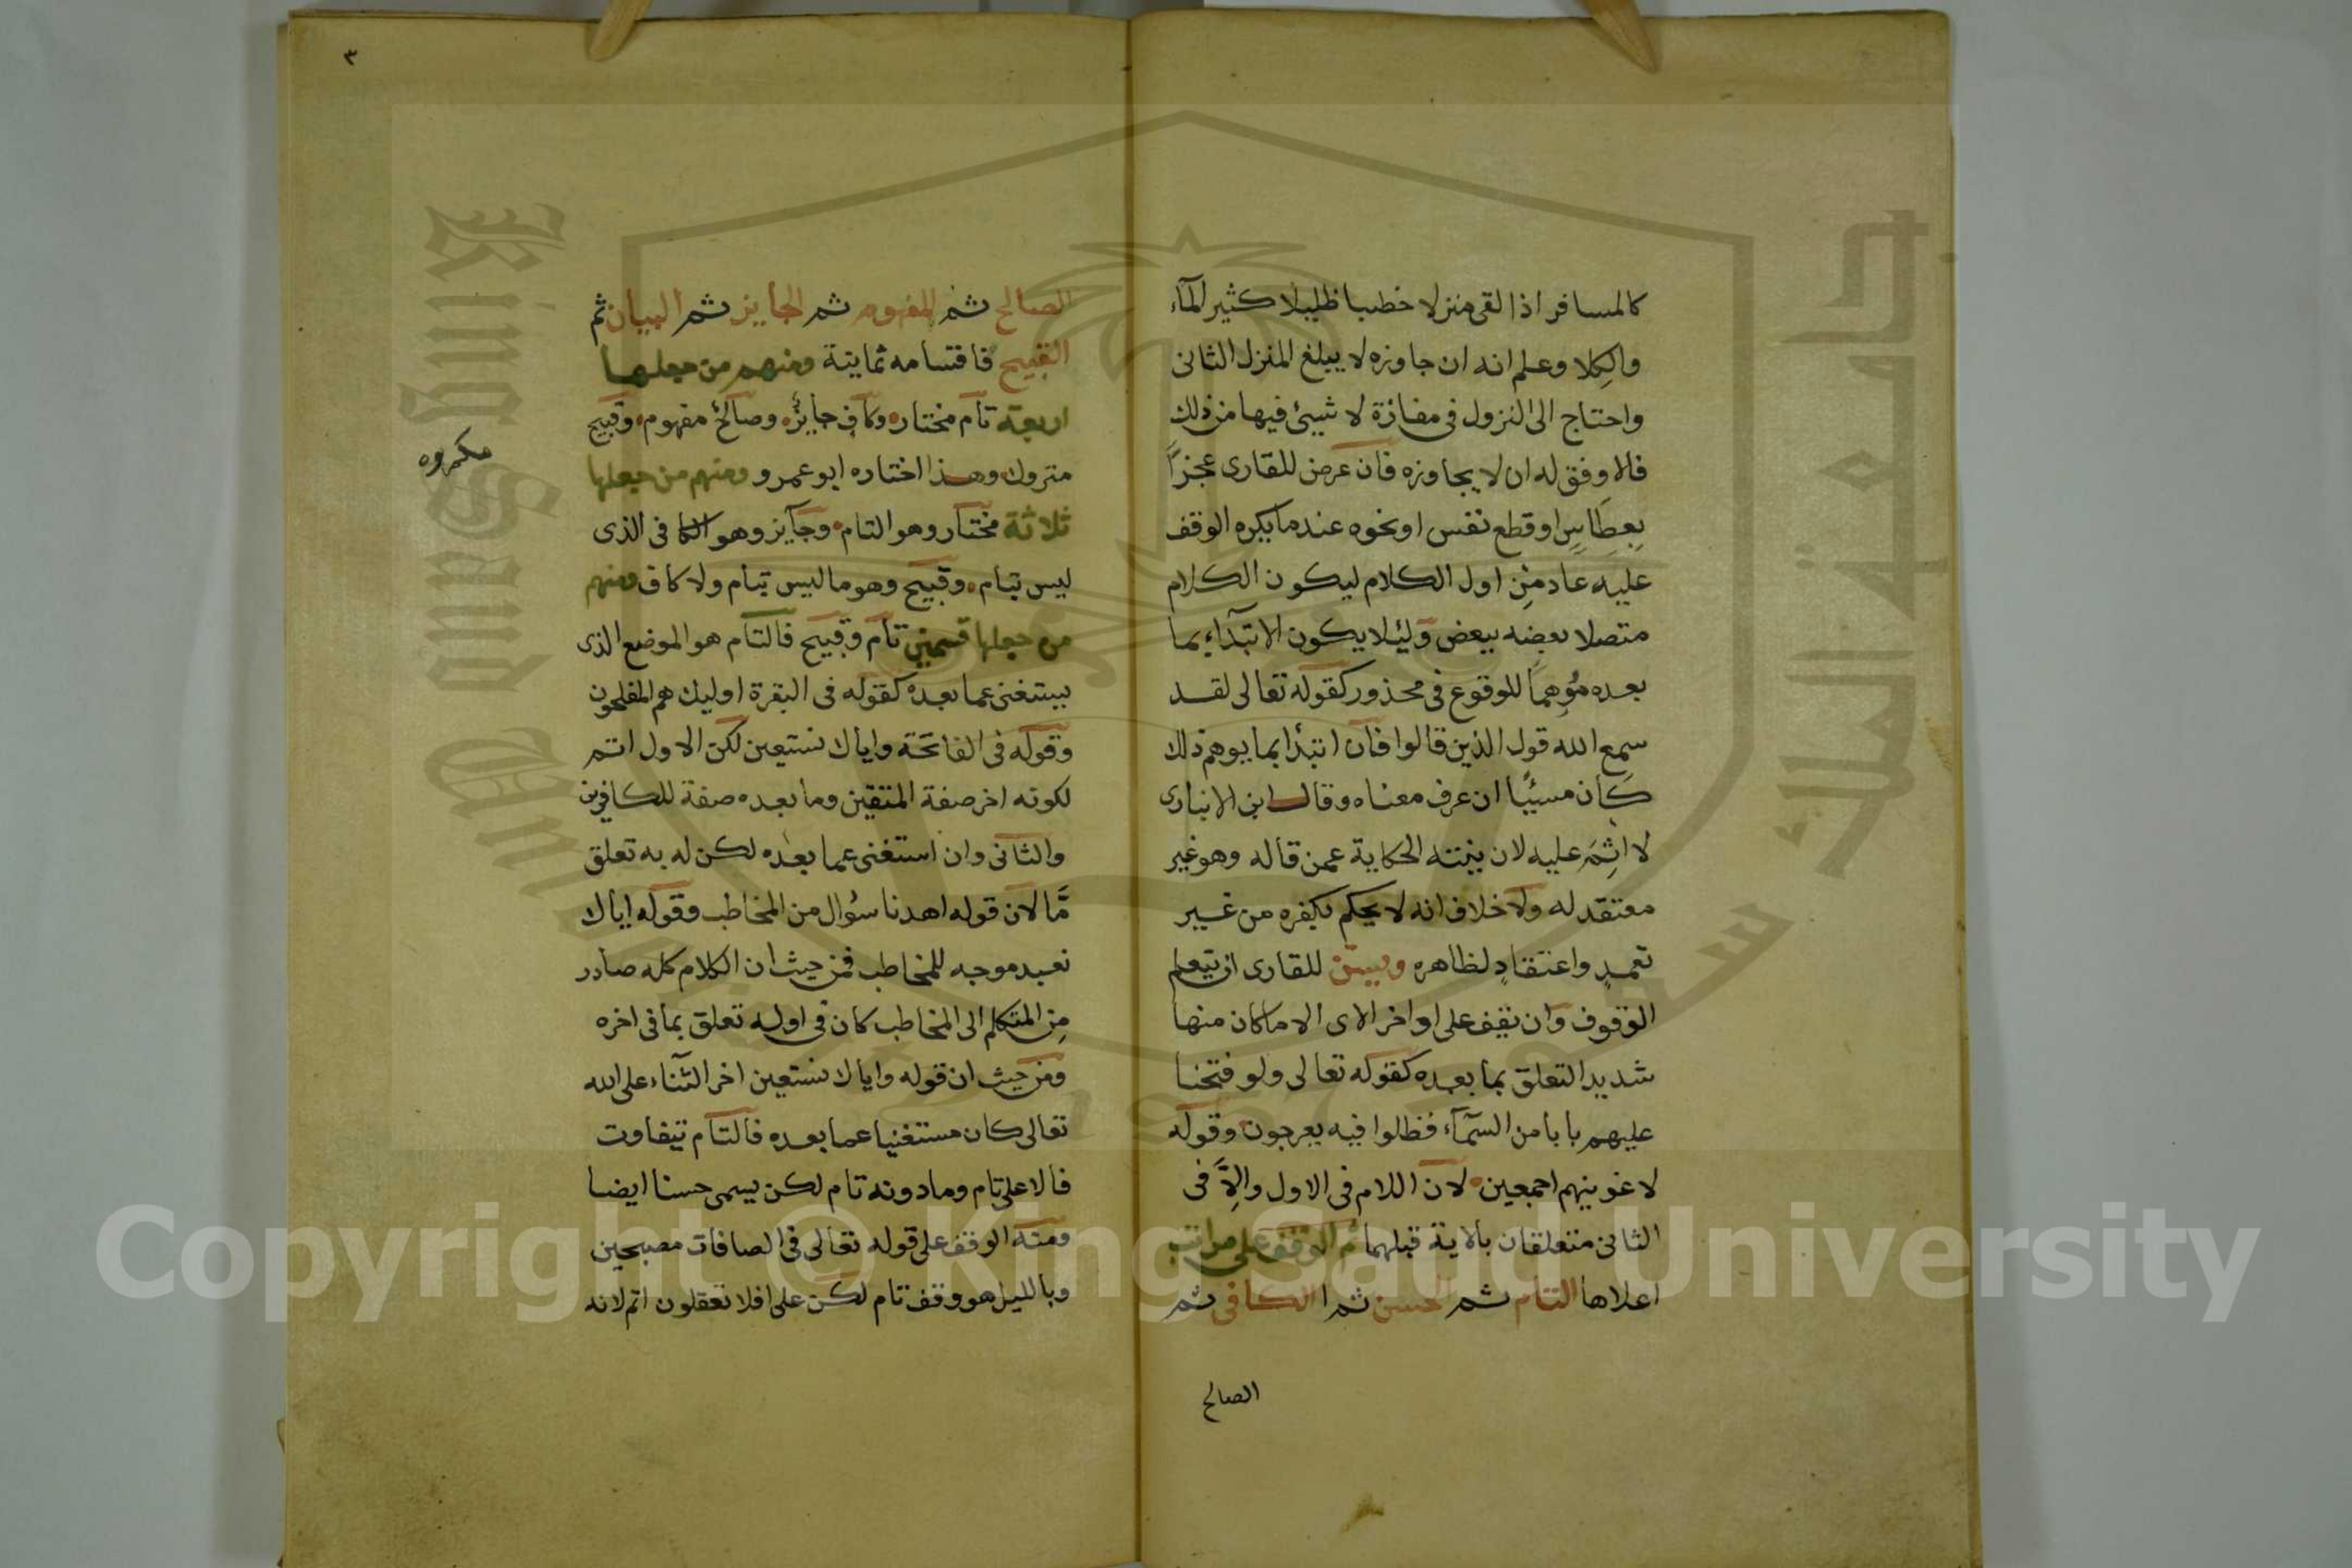 كالمسافر اذا لقى منزلا خطبا ظليلا كثير المآء
والكلا وعلم انه ان جاوزه لا يبلغ المنزل الثانى
واحتاج الى النزول فى مفازة لا شيئ فيها من ذلك
فالاوفق له ان لا يجاوزه فان عرض للقارى عجزاً
بعطاس او قطع نفس او نحوه عندما يكره الوقف
عليه عاد من اول الكلام ليكون الكلام
متصلا بعضه ببعض وليئلا يكون الابتدآء بما
بعده مُوهِماً للوقوع فى محذور كقوله تعالى لقد
سمع الله قول الذين قالوا فان ابتدأ بما يوهم ذلك
كان مسيئًا ان عرف معناه وقال ابن الانبارى
لا اثم عليه لان نيته الحكاية عمن قاله وهو غير
معتقد له ولا خلاف انه لا يحكم بكفره من غير
تعمدٍ واعتقادٍ لظاهره ويسن للقارى ان يتعلم
الوقوف وان يقف على اواخر الاى الا ماكان منها
شديد التعلق بما بعده كقوله تعالى ولو فتحنا
عليهم بابا من السمآء فظلوا فيه يعرجون وقوله
لاغوينهم اجمعين لان اللام فى الاول والاّ فى
الثانى متعلقان بالاية قبلهما ثم الوقف على مراتب
اعلاها التام ثم الحسن ثم الكافى ثم
الصالح
٣
الصالح ثم المفهوم ثم الجايز ثم البيان ثم
القبيح فاقسامه ثمانية ومنهم من جعلها
اربعة تام مختار وكاف جايز وصالح مفهوم وقبيح
متروك وهذا اختاره ابو عمرو ومنهم من جعلها
ثلاثة مختار وهو التام وجايز وهو الكافى الذى
ليس بتام وقبيح وهو ما ليس بتام ولا كاف ومنهم
من جعلها قسمين تام وقبيح فالتام هو الموضع الذى
يستغنى عما بعده كقوله فى البقرة اوليك هم المفلحون
وقوله فى الفاتحة واياك نستعين لكن الاول اتم
لكونه اخر صفة المتقين وما بعده صفة للكافرين
والثانى وان استغنى عما بعده لكن له به تعلق
مَّا لان قوله اهدنا سؤال من المخاطب وقوله اياك
نعبد موجه للمخاطب فمن حيث ان الكلام كله صادر
مِن المتكلم الى المخاطب كان فى اوله تعلق بما فى اخره
ومن حيث ان قوله واياك نستعين اخر الثناء على الله
تعالى كان مستغنيا عما بعده فالتام يتفاوت
فالاعلى تام وما دونه تام لكن يسمى حسنا ايضا
ومنه الوقف على قوله تعالى فى الصافات مصبحين
وبالليل هو وقف تام لكن على افلا تعقلون اتم لانه
مكروه
Copyright © King Saud University